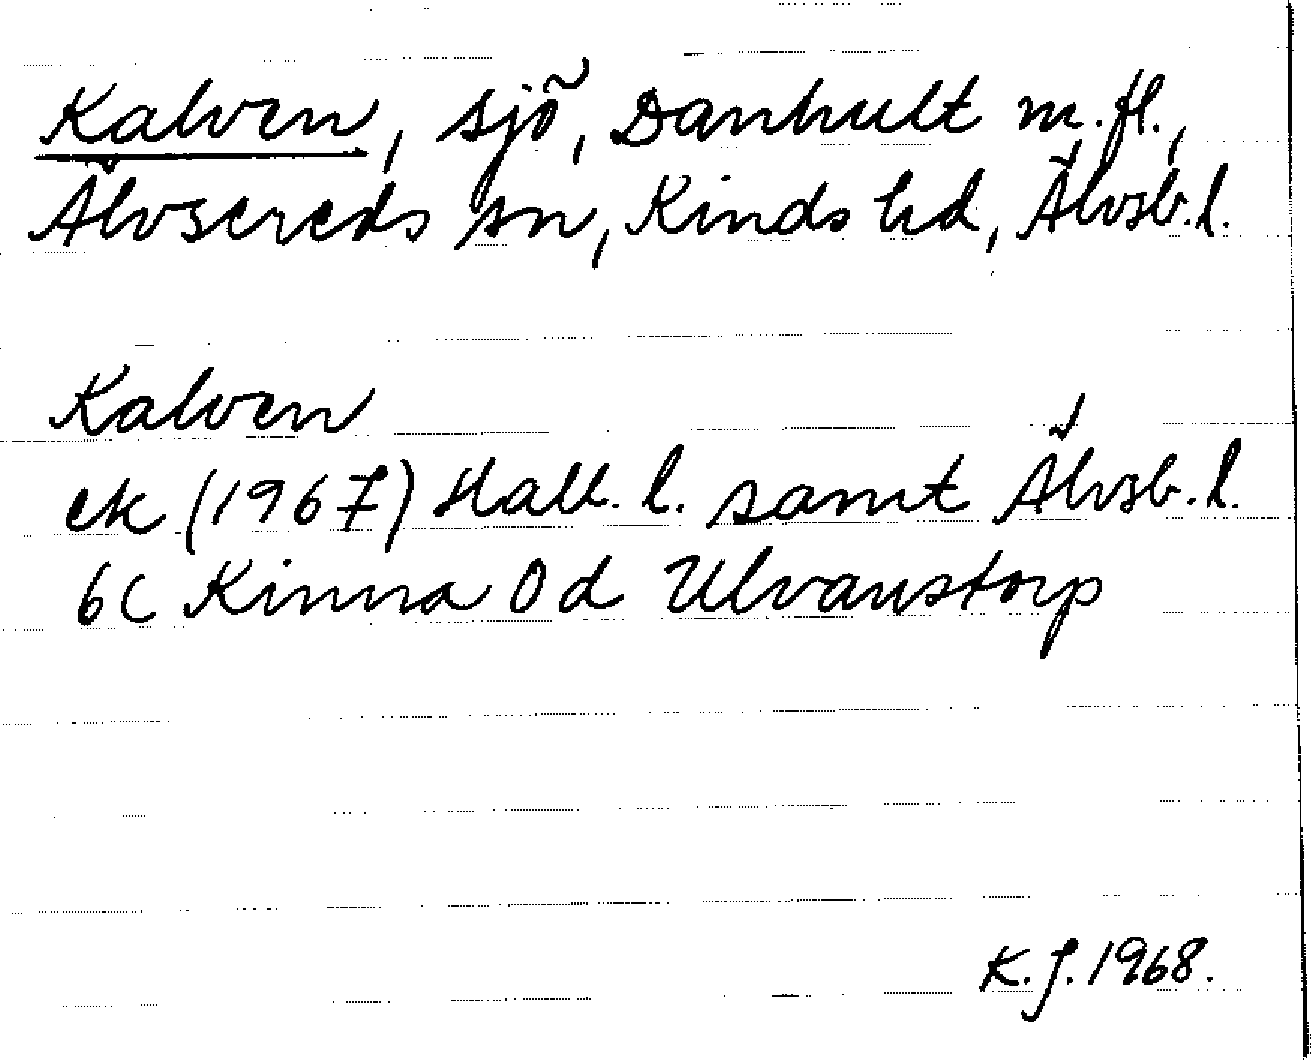 Kalven, sjö, Danhult m.fl.,
Älvsereds sn, Kinds hd, Älvsb.l.
Kalven
ek (1967) Hall. l. samt Älvsb.l.
6C Kinna 0d Ulvanstorp
K.J. 1968.